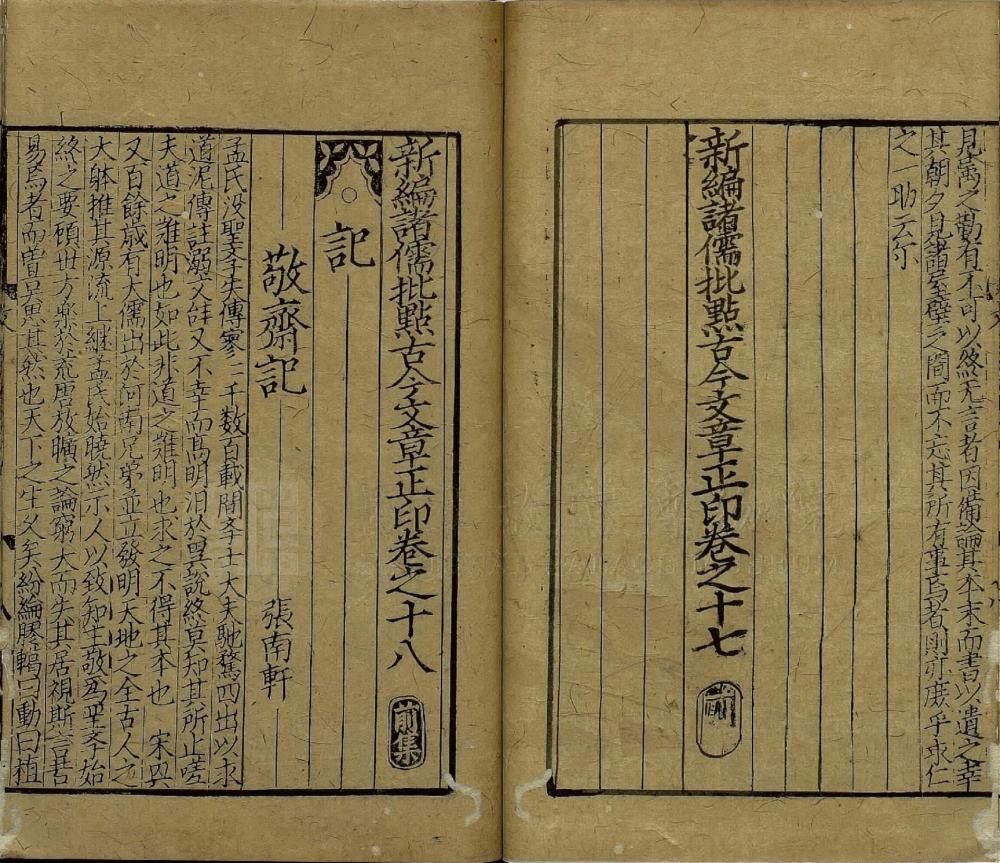 見寓之勤有不可以終无言者因備論其本末而書以遺之幸
其朝夕見諸屋壁之間而不忘其所有事焉者則可庶乎求仁
之一助云尔
新編諸儒批點古今文章正印卷之十七 前
新編諸儒批點古今文章正印卷之十八 前集
記
敬齋記 張南軒
孟氏没聖孝失傳寥寥千数百載間孝士大夫馳騖四出以求
道泥傳註溺文辞又不幸而髙明汨於異說終莫知其所止嗟
夫道之難明也如此非道之難明也求之不得其本也 宋興
又百餘歳有大儒出於河南兄弟並立發明天地之全古人之
大躰推其源流上継孟氏始曉然示人以致知主敬為聖孝始
終之要領世方樂於荒唐放曠之論窮大而失其居視斯言若
易焉者而曽莫思其然也天下之生久矣紛綸膠轕曰動曰植